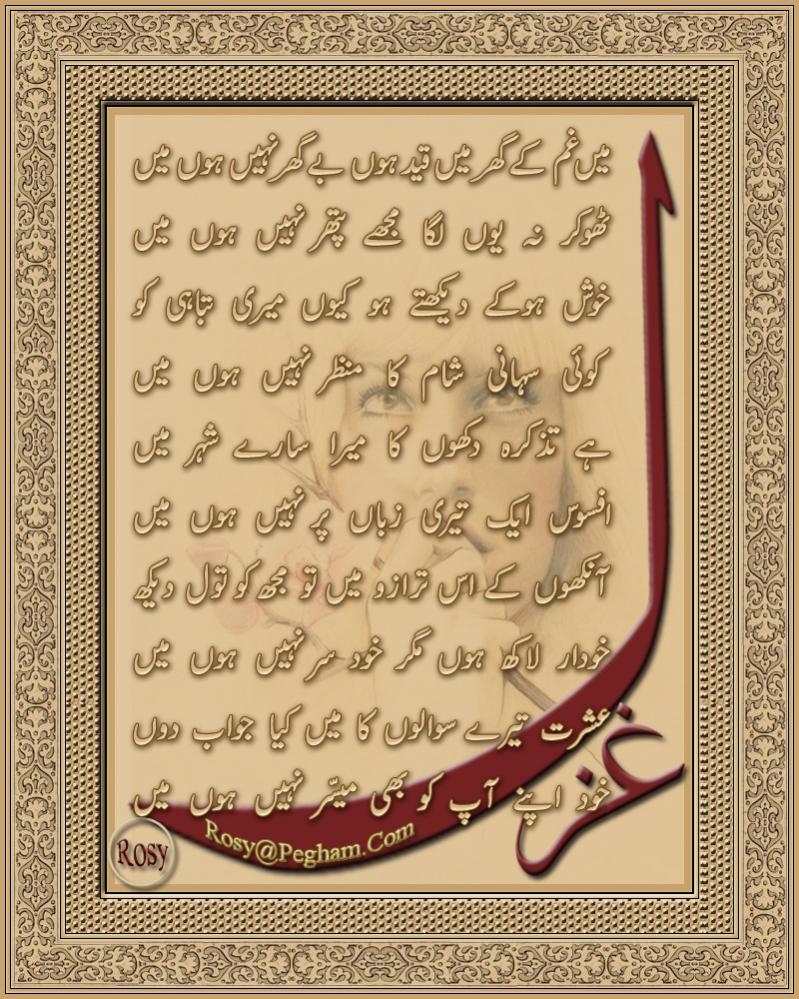 میں غم کے گھر میں قید ہوں بے گھر نہیں ہوں میں
ٹھوکر نہ یوں لگا مجھے پتھر نہیں ہوں میں
خوش ہوکے دیکھتے ہو کیوں میری تباہی کو
کوئی سہانی شام کا منظر نہیں ہوں میں
ہے تذکرہ دکھوں کا میرا سارے شہر میں
افسوس ایک تیری زباں پر نہیں ہوں میں
آنکھوں کے اس ترازو میں تو مجھ کو تول دیکھ
خودار لاکھ ہوں مگر خود سر نہیں ہوں میں
عشرت تیرے سوالوں کا میں کیا جواب دوں
خود اپنے آپ کو بھی میسّر نہیں ہوں میں
غزل
Rosy@Pegham.Com
Rosy